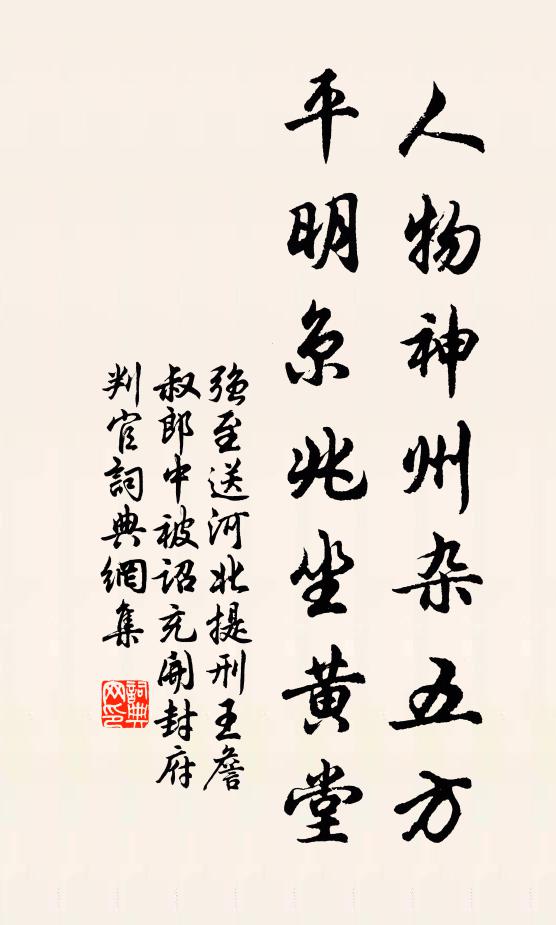 人物神州杂五方
平明京兆坐黄堂
强至送河北提刑王詹
叔郎中被诏充開封府
判官詞典網集
詞典
网印